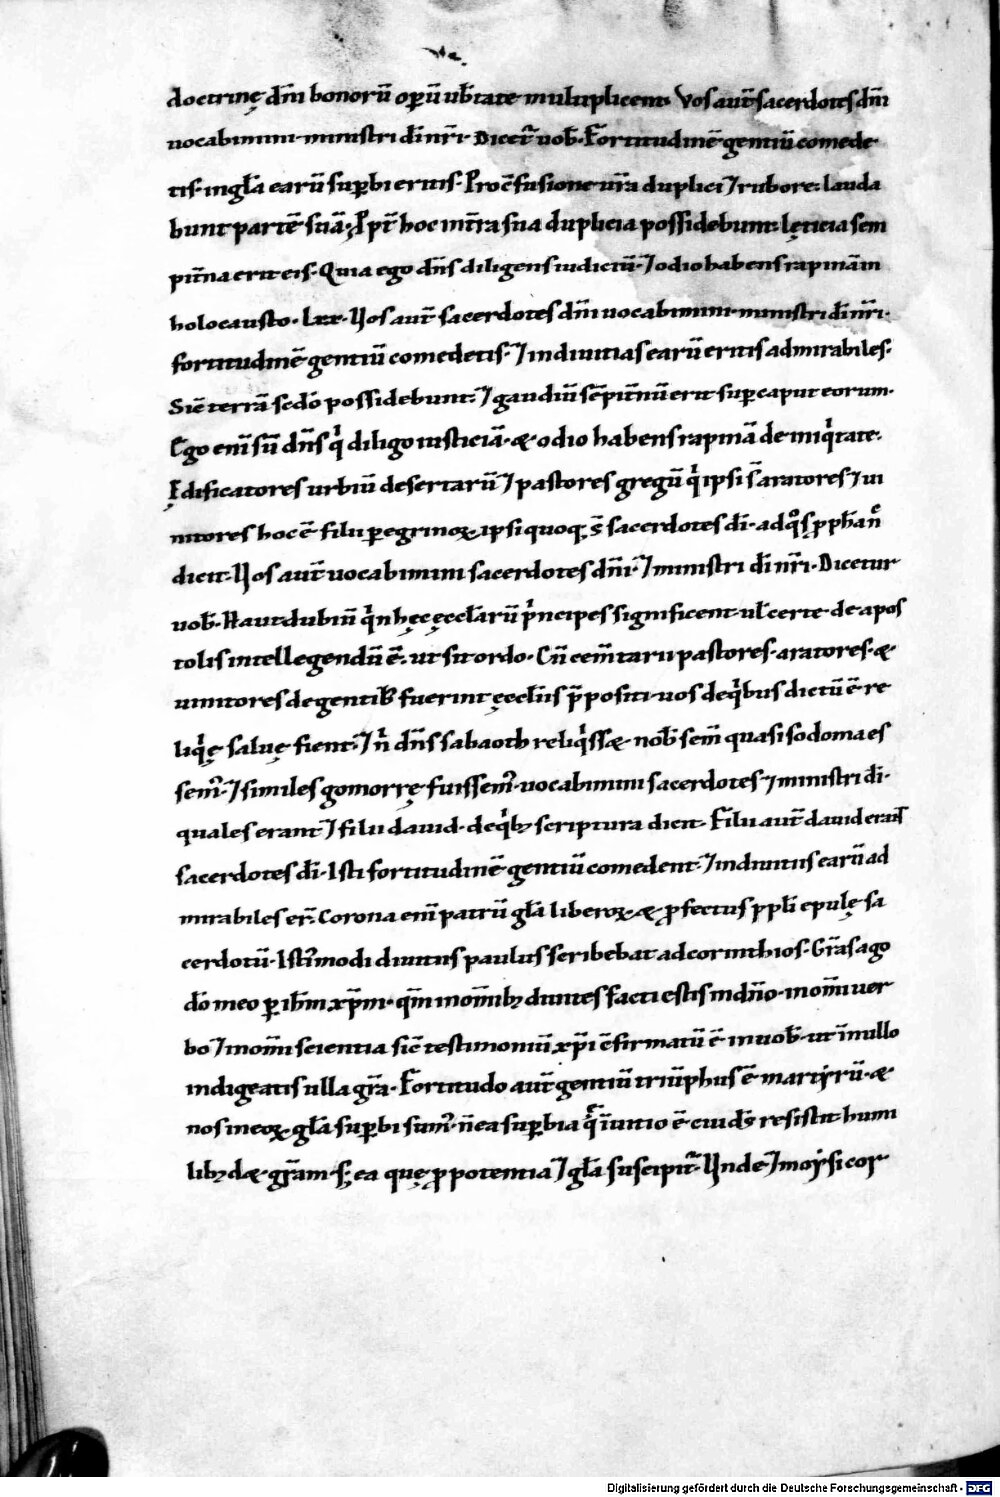 doctrinę dn̄i bonorū oꝑū ub̄tate multiplicent. Vos aut̄ sacerdotes dn̄i
uocabimini. ministri dī nr̄i. Dicet̄ uob̄. Fortitudinē gentiū comede
tis. in gl̄a earū suꝑbi eritis. Pro c̄fusione ur̄a duplici ⁊ rubore: lauda
bunt partē suā. Ꝓpt̄ hoc in tr̄a sua duplicia possidebunt: lęticia sem
pit̄na erit eis. Quia ego dn̄s diligens iudiciū. ⁊ odio habens rapinā in
holocausto. Lxx. Uos aut̄ sacerdotes dn̄i uocabimini. ministri dī nr̄i.
fortitudinē gentiū comedetis. ⁊ in diuitias earū eritis admirabiles.
Sic̄ terrā sc̄do possidebunt: ⁊ gaudiū sēpit̄nū erit suꝑ caput eorum.
Ego enī sū dn̄s qͥ diligo iusticiā. & odio habens rapinā de iniqͥtate.
Ędificatores urbiū desertarū ⁊ pastores gregū qͥ ipsi s̄ aratores ⁊ ui
nitores hoc ē filii ꝑegrinoꝝ. ipsi quoq; s̄ sacerdotes dī. ad qͦs ꝓph̄a nc̄
dicit. Uos aut̄ uocabimini sacerdotes dn̄i. ⁊ ministri dī nr̄i. Dicetur
uob̄. Haut dubiū qͥn hęc ęccl̄arū pͥncipes significent. ul̄ certe. de apos
tolis intellegendū ē. ut sit ordo. Cū cem̄tarii pastores. aratores. &
uinitores de gentib; fuerint ęccl̄iis p̄positi. uos de qͥbus dictū ē. re
liqͥę saluę fient. ⁊ n̄ dn̄s sabaoth reliqͥss& nob̄ sem̄ quasi sodoma es
sem᷒. ⁊ similes gomorrę fuissem᷒. uocabimini sacerdotes ⁊ ministri dī.
quales erant ⁊ filii dauid. de qͥb; scriptura dicit. Filii aut̄ dauid erant
sacerdotes dī. Isti fortitudinē gentiū comedent. ⁊ in diuitiis earū ad
mirabiles er̄. Corona enī patrū gl̄a liberoꝝ. & ꝓfectus ꝓpl̄i epulę sa
cerdotū. Isti᷒modi diuitiis paulus scribebat ad corinthios. Gr̄as ago
dō meo ꝑ ih̄m xp̄m. qm̄ in om̄ib; diuites facti estis in dn̄o. in om̄i uer
bo. ⁊ in om̄i scientia sic̄ testimoniū xp̄i c̄firmatū ē in uob̄. ut ī nullo
indigeatis ulla gr̄a. Fortitudo aut̄ gentiū triūphus ē martyrū. &
nos in eoꝝ gl̄a suꝑbi sum᷒. n̄ ea suꝑbia qͥ ī uitio ē. cui dn̄s resistit. humi
lib; d& gr̄am. s; ea quę ꝓ potentia ⁊ gl̄a suscipit᷑. Unde ⁊ moysi cor
Digitalisierung gefördert durch die Deutsche Forschungsgemeinschaft - DFG